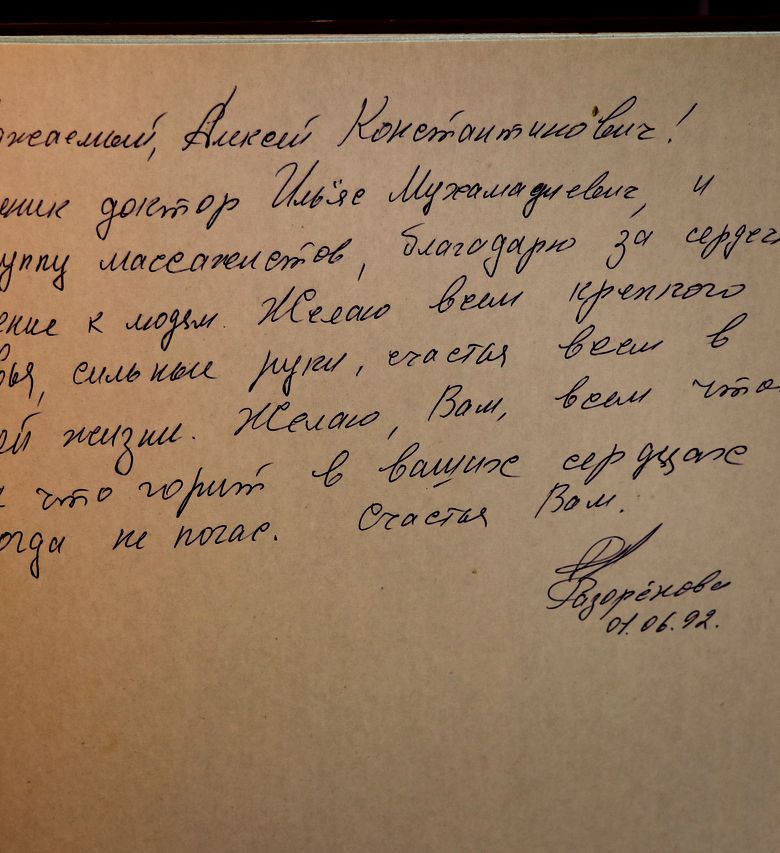 ажаемый, Алексей Константинович!
еник доктор Ильяс Мухамадиевич, и
уппу массажистов, благодарю за сердечн
ение к людям. Желаю всем крепкого
вья, сильные руки, счастья всем в
ой жизни. Желаю, Вам, всем что
к что горит в ваших сердцах
огда не погас. Счастья Вам.
Разорёнова
01.06.92.